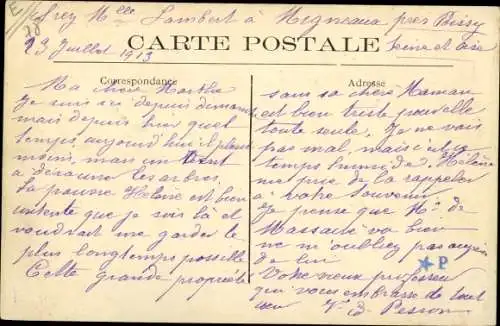 chez Mlle Lambert à Migneaux près Poissy
23 Juillet 1913 Seine et Oise
CARTE POSTALE
Correspondance
Ma chère Marthe
Je suis ici depuis dimanche
mais depuis hier quel
temps, aujourd'hui il pleut
moins, mais un vent
à déraciner les arbres.
La pauvre Hélène est bien
contente que je sois là et
voudrait me garder le
plus longtemps possible
Cette grande propriété
Adresse
sans sa chère Maman
est bien triste pour elle
toute seule. Je ne vais
pas mal, mais c'est
temps humide. Hélène
me prie de la rappeler
à votre souvenir
Je pense que Mr de
Massault va bien
ne m'oubliez pas auprès
de lui
Votre vieux professeur
qui vous embrasse de tout
cœur
Pesson
P